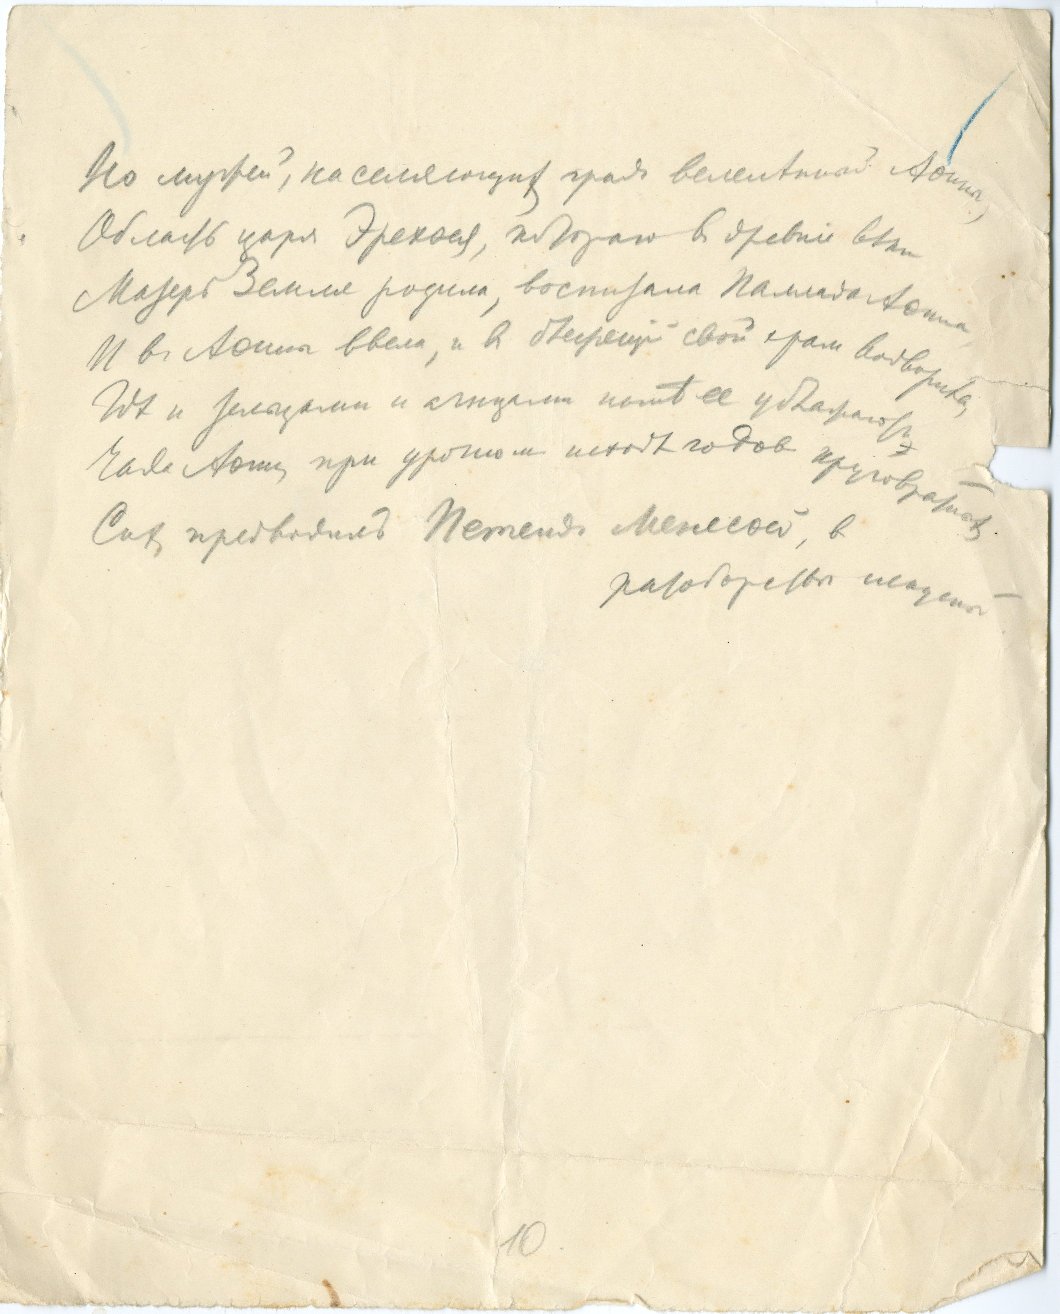 Но мужей, населяющих градъ велелѣпный Аѳины,
Область царя Эрехѳея, котораго в древніе вѣки
Матерь Земля родила, воспитала Паллада Аѳина
И въ Аѳины ввела, и в блестящій свой храм водворила,
Гдѣ и тельцами и агнцами нынѣ ее ублажают
Чада Аѳин, при урочном исходѣ годов круговратных.
Сих предводилъ Петеидъ Менесѳей, в
ратоборствѣ искусный
10